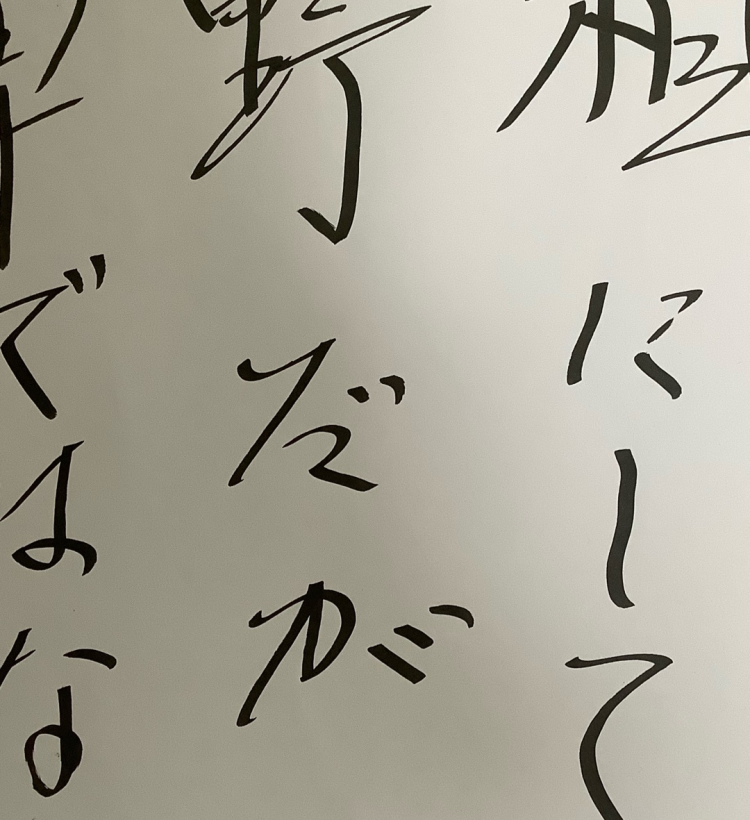 にして
野だが
ではな